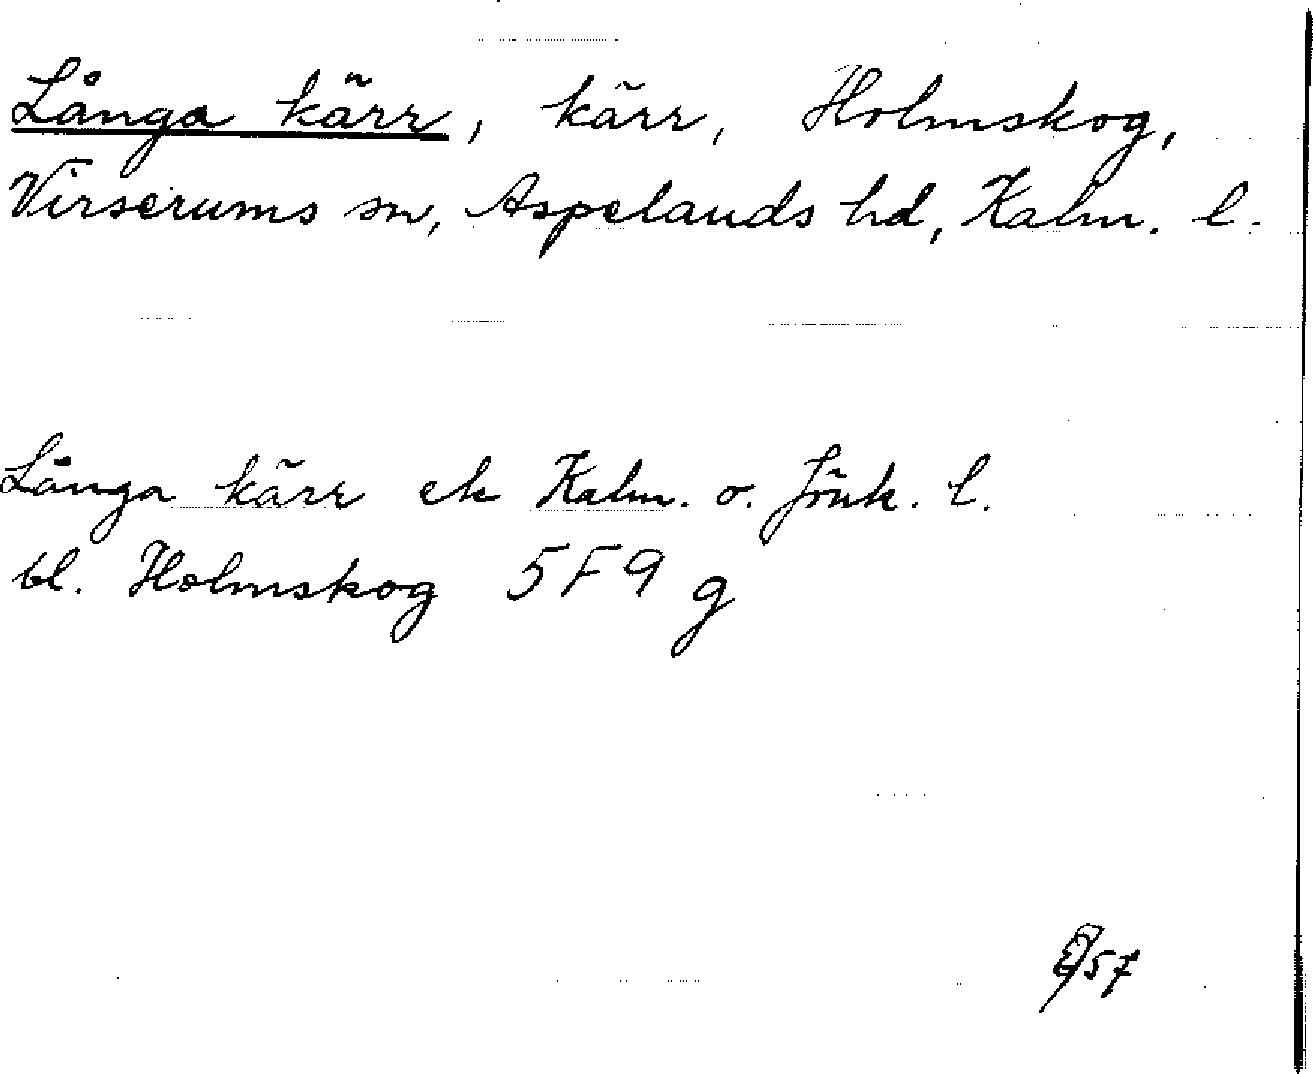 Långa kärr, kärr, Holmskog,
Virserums sn, Aspelands hd, Kalm. l.
Långa kärr ek Kalm. o. Jönk. l.
bl. Holmskog 5F9 g
57